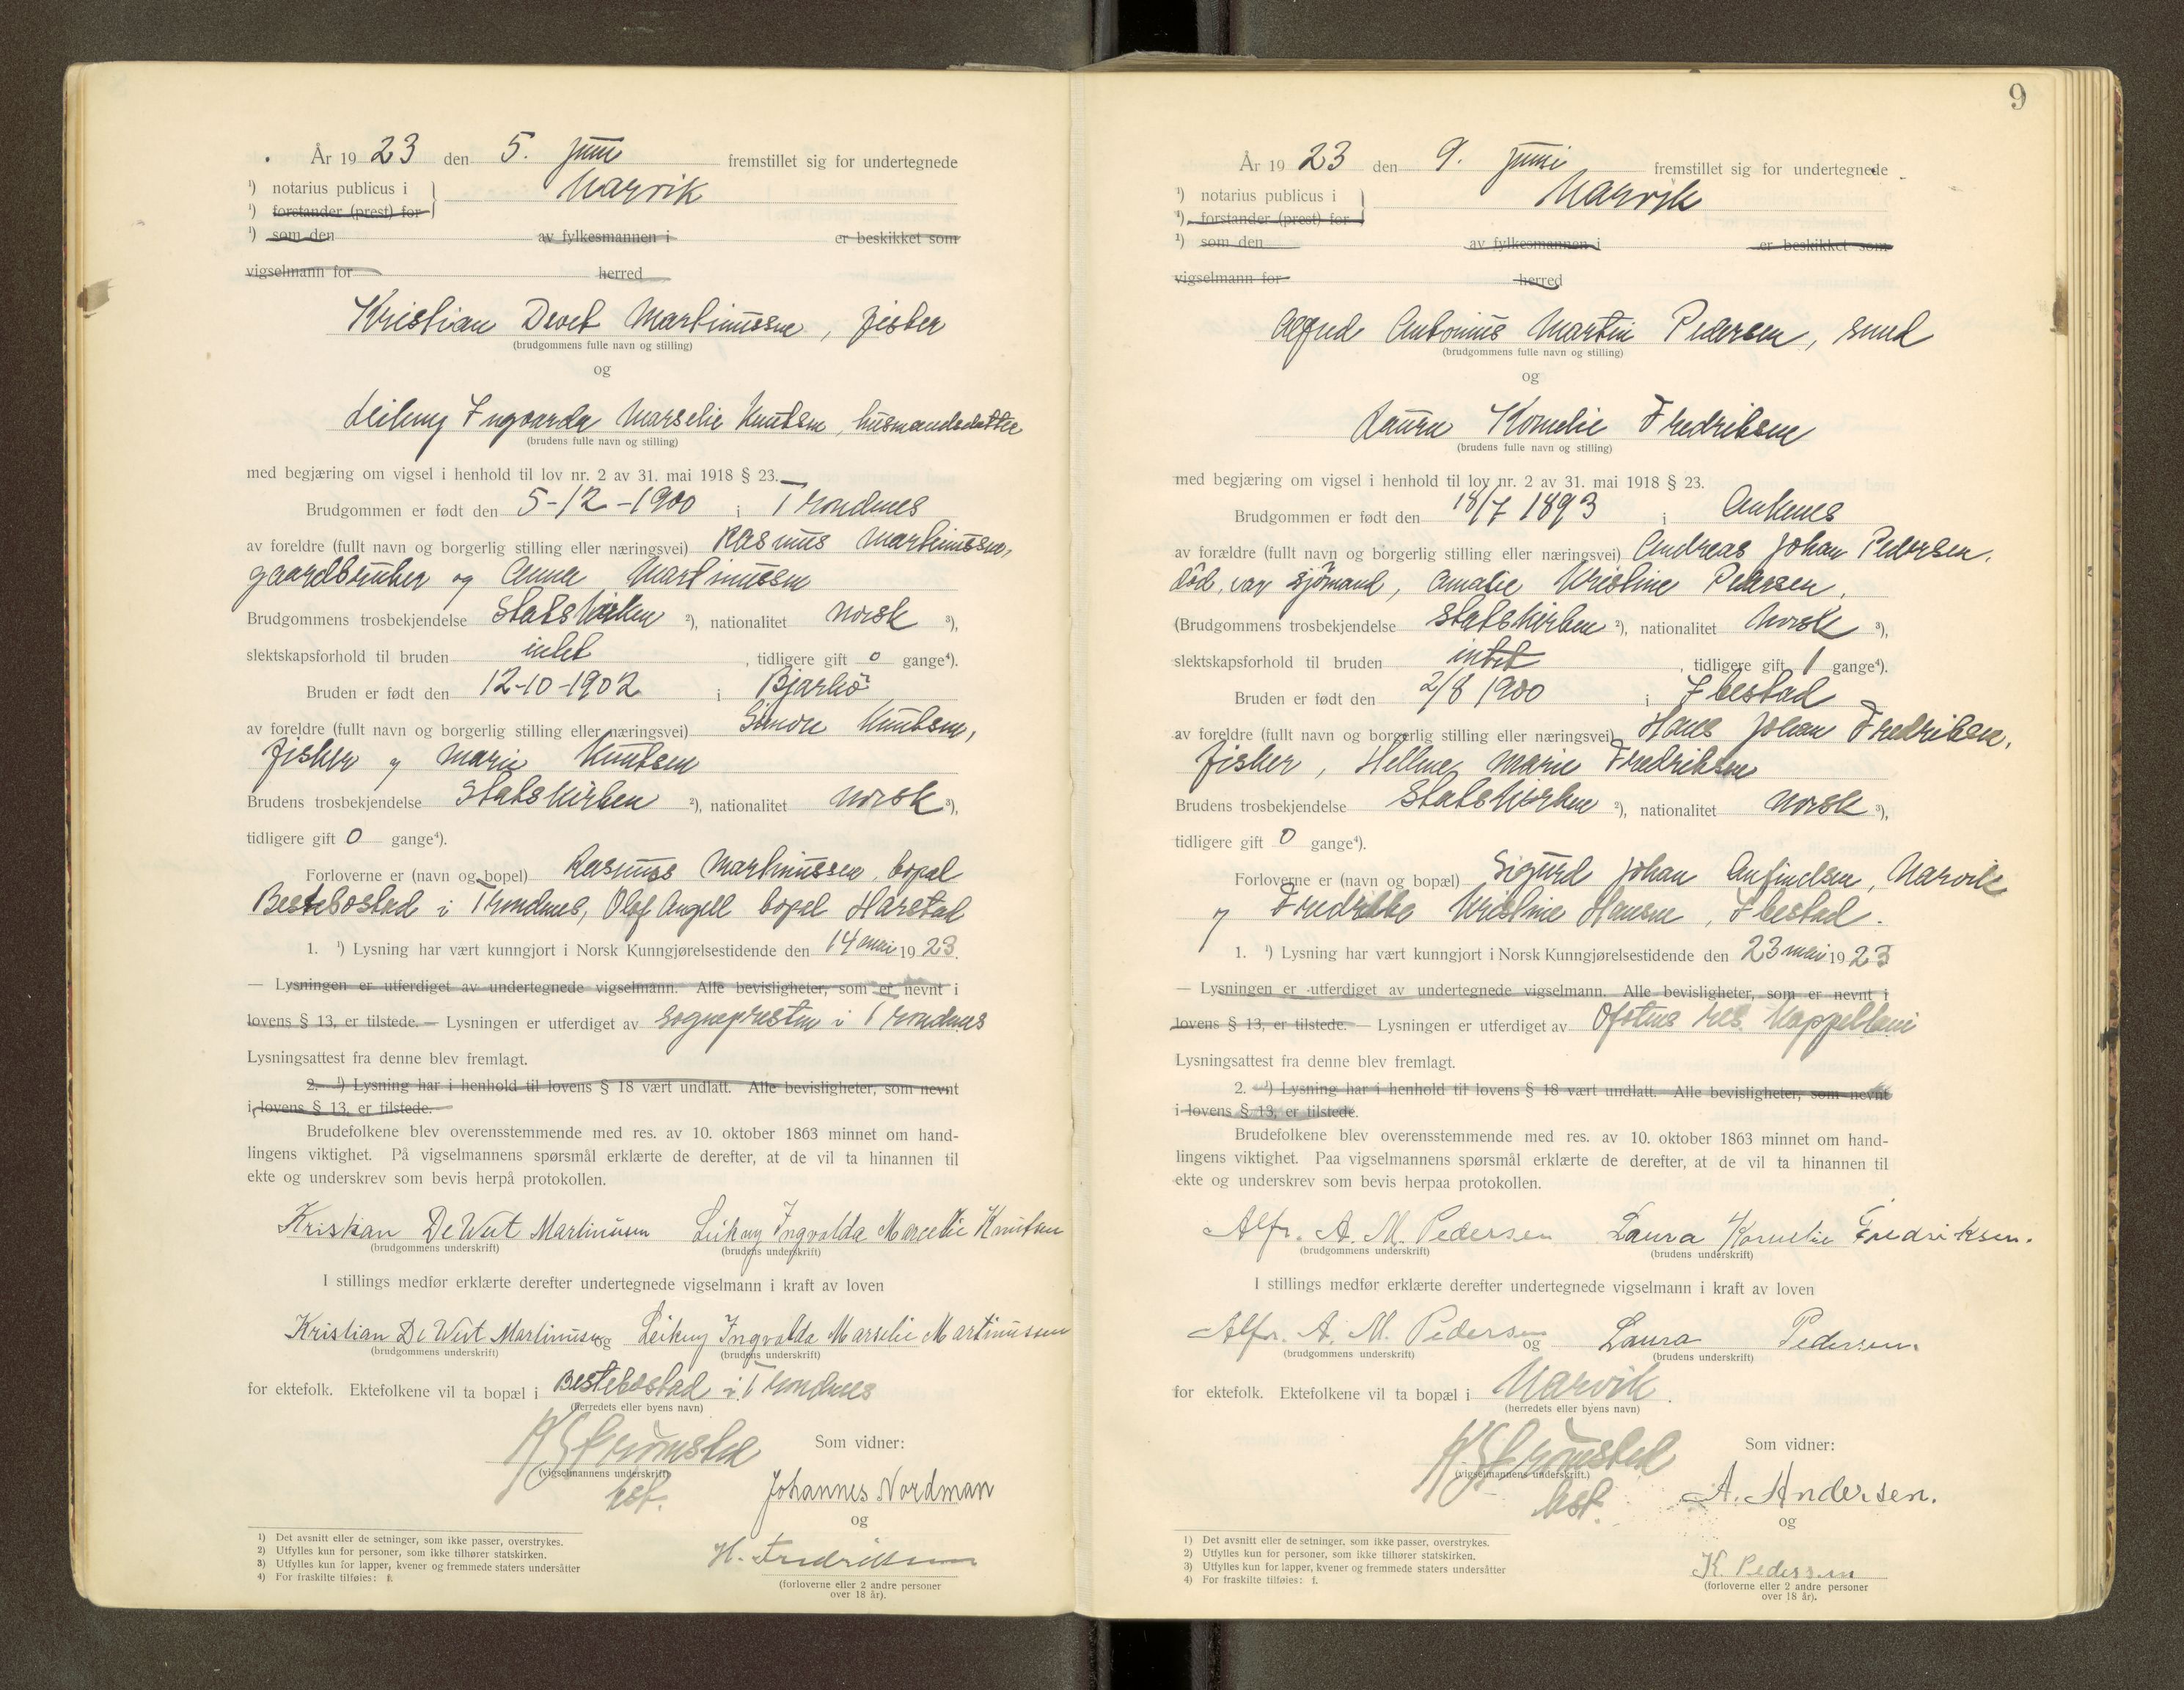 År 1923 den 5. juni fremstillet sig for undertegnede
¹) notarius publicus i Narvik
¹) forstander (prest) for
¹) som den av fylkesmannen i er beskikket som
vigselmann for herred
Kristian Devet Martinussen, fisker
(brudgommens fulle navn og stilling)
og
Leikny Ingvarda Marselie Knutsen, husmandsdatter
(brudens fulle navn og stilling)
med begjæring om vigsel i henhold til lov nr. 2 av 31. mai 1918 § 23.
Brudgommen er født den 5-12-1900 i Trondenes
av foreldre (fullt navn og borgerlig stilling eller næringsvei) Rasmus Martinussen,
gaardbruker og Anna Martinussen
Brudgommens trosbekjendelse Statskirken ²), nationalitet norsk ³),
slektskapsforhold til bruden intet, tidligere gift 0 gange⁴).
Bruden er født den 12-10-1902 i Bjarkö
av foreldre (fullt navn og borgerlig stilling eller næringsvei) Simon Knutsen,
fisker og Marie Knutsen
Brudens trosbekjendelse Statskirken ²), nationalitet norsk ³),
tidligere gift 0 gange⁴).
Forloverne er (navn og bopel) Rasmus Martinussen, bopel
Bestebostad i Trondenes, Olaf Angell bopel Harstad
1. ¹) Lysning har vært kunngjort i Norsk Kunngjørelsestidende den 14 mai 1923.
— Lysningen er utferdiget av undertegnede vigselmann. Alle bevisligheter, som er nevnt i
lovens § 13, er tilstede. — Lysningen er utferdiget av Sognepresten i Trondenes
Lysningsattest fra denne blev fremlagt.
2. ¹) Lysning har i henhold til lovens § 18 vært undlatt. Alle bevisligheter, som nevnt
i lovens § 13, er tilstede.
Brudefolkene blev overensstemmende med res. av 10. oktober 1863 minnet om hand-
lingens viktighet. På vigselmannens spørsmål erklærte de derefter, at de vil ta hinannen til
ekte og underskrev som bevis herpå protokollen.
Kristian De Wet Martinusen Leikny Ingvalda Marcelie Knutsen
(brudgommens underskrift) (brudens underskrift)
I stillings medfør erklærte derefter undertegnede vigselmann i kraft av loven
Kristian De Wet Martinusen og Leikny Ingvalda Marselie Martinussen
(brudgommens underskrift) (brudens underskrift)
for ektefolk. Ektefolkene vil ta bopæl i Bestebostad i Trondenes
(herredets eller byens navn)
K Strömsted
(vigselmannens underskrift)
kst.
Som vidner:
Johannes Nordman
og
H. Fredriksen
(forloverne eller 2 andre personer
over 18 år).
1) Det avsnitt eller de setninger, som ikke passer, overstrykes.
2) Utfylles kun for personer, som ikke tilhører statskirken.
3) Utfylles kun for lapper, kvener og fremmede staters undersåtter
4) For fraskilte tilføies: f.
9
År 1923 den 9. juni fremstillet sig for undertegnede
¹) notarius publicus i Narvik
¹) forstander (prest) for
¹) som den av fylkesmannen i er beskikket som
vigselmann for herred
Alfred Antonius Martin Pedersen, smed
(brudgommens fulle navn og stilling)
og
Laura Kornelie Fredriksen
(brudens fulle navn og stilling)
med begjæring om vigsel i henhold til lov nr. 2 av 31. mai 1918 § 23.
Brudgommen er født den 18/7 1893 i Ankenes
av forældre (fullt navn og borgerlig stilling eller næringsvei) Andreas Johan Pedersen,
död, var sjömand, Amalie Kristine Pedersen,
(Brudgommens trosbekjendelse Statskirken ²), nationalitet norsk ³),
slektskapsforhold til bruden intet, tidligere gift 1 gange⁴).
Bruden er født den 2/8 1900 i Ibestad
av foreldre (fullt navn og borgerlig stilling eller næringsvei) Hans Johan Fredriksen,
fisker, Helline Marie Fredriksen
Brudens trosbekjendelse Statskirken ²), nationalitet norsk ³),
tidligere gift 0 gange⁴).
Forloverne er (navn og bopæl) Sigurd Johan Anfindsen, Narvik
og Fredrikke Kristine Hansen, Ibestad.
1. ¹) Lysning har vært kunngjort i Norsk Kunngjørelsestidende den 23 mai 1923
— Lysningen er utferdiget av undertegnede vigselmann. Alle bevisligheter, som er nevnt i
lovens § 13, er tilstede. — Lysningen er utferdiget av Ofotens res. Kappellani
Lysningsattest fra denne blev fremlagt.
2. ¹) Lysning har i henhold til lovens § 18 vært undlatt. Alle bevisligheter, som nevnt
i lovens § 13, er tilstede.
Brudefolkene blev overensstemmende med res. av 10. oktober 1863 minnet om hand-
lingens viktighet. Paa vigselmannens spørsmål erklærte de derefter, at de vil ta hinannen til
ekte og underskrev som bevis herpaa protokollen.
Alfr. A. M. Pedersen Laura Kornelie Fredriksen.
(brudgommens underskrift) (brudens underskrift)
I stillings medfør erklærte derefter undertegnede vigselmann i kraft av loven
Alfr. A. M. Pedersen og Laura Pedersen.
(brudgommens underskrift) (brudens underskrift)
for ektefolk. Ektefolkene vil ta bopæl i Narvik.
(herredets eller byens navn)
K Strömsted
(vigselmannens underskrift.)
kst.
Som vidner:
A. Andersen.
og
K. Pedersen
(forloverne eller 2 andre personer
over 18 år).
1) Det avsnitt eller de setninger, som ikke passer, overstrykes.
2) Utfylles kun for personer, som ikke tilhører statskirken.
3) Utfylles kun for lapper, kvener og fremmede staters undersåtter
4) For fraskilte tilføies: f.